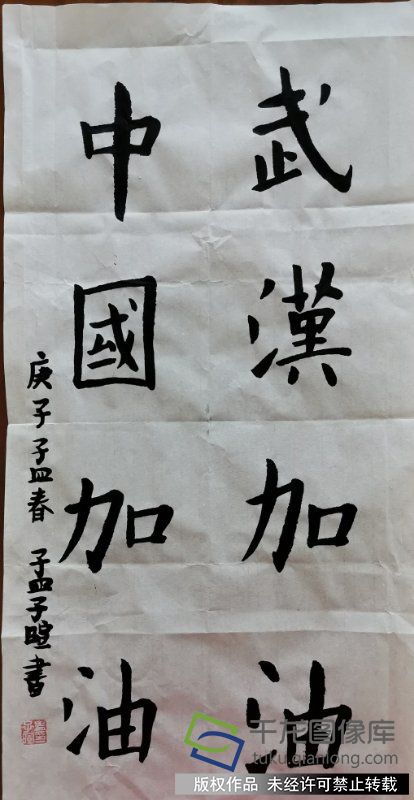 武漢加油
中國加油
庚子孟春 孟子暄書
千龙图像库
tuku.qianlong.com
版权作品 未经许可禁止转载